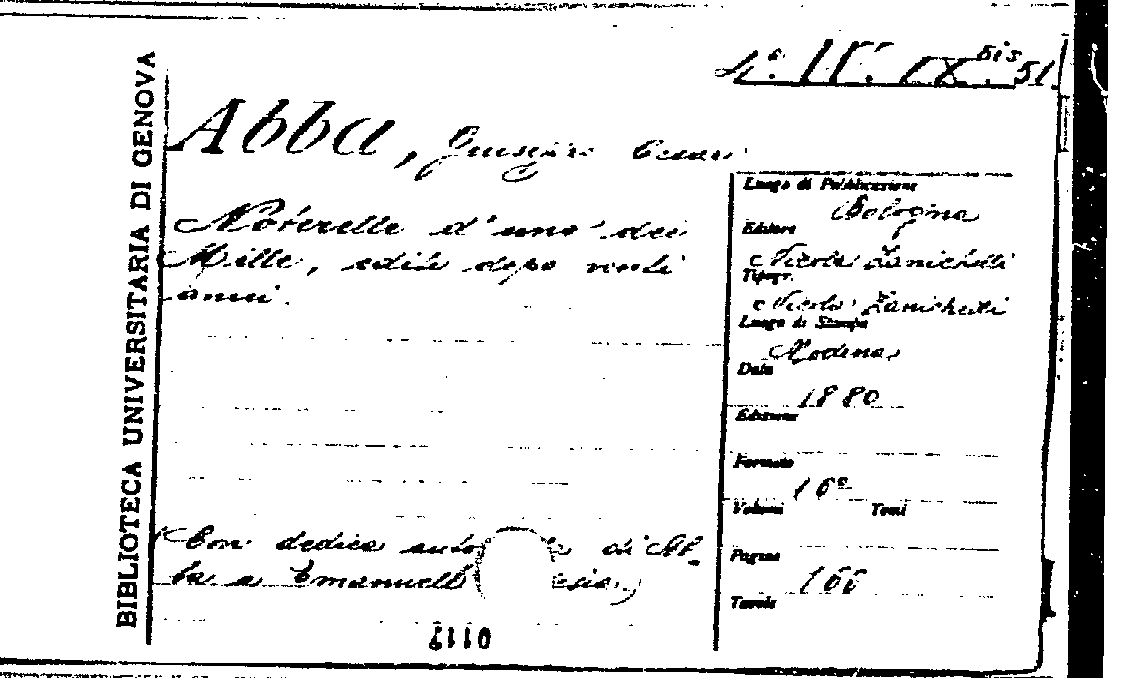 BIBLIOTECA UNIVERSITARIA DI GENOVA
4.° IV. IX. bis 51
Abba, Giuseppe Cesare
Noterelle d'uno dei
Mille, edite dopo venti
anni.
Luogo di Pubblicazione
Bologna
Editore
Nicola Zanichelli
Tipogr.
Nicola Zanichelli
Luogo di Stampa
Modena
Data
1880
Edizione
Formato
16°
Volumi Tomi
Pagine
166
Tavole
(Con dedica di Ab-
ba a
0112